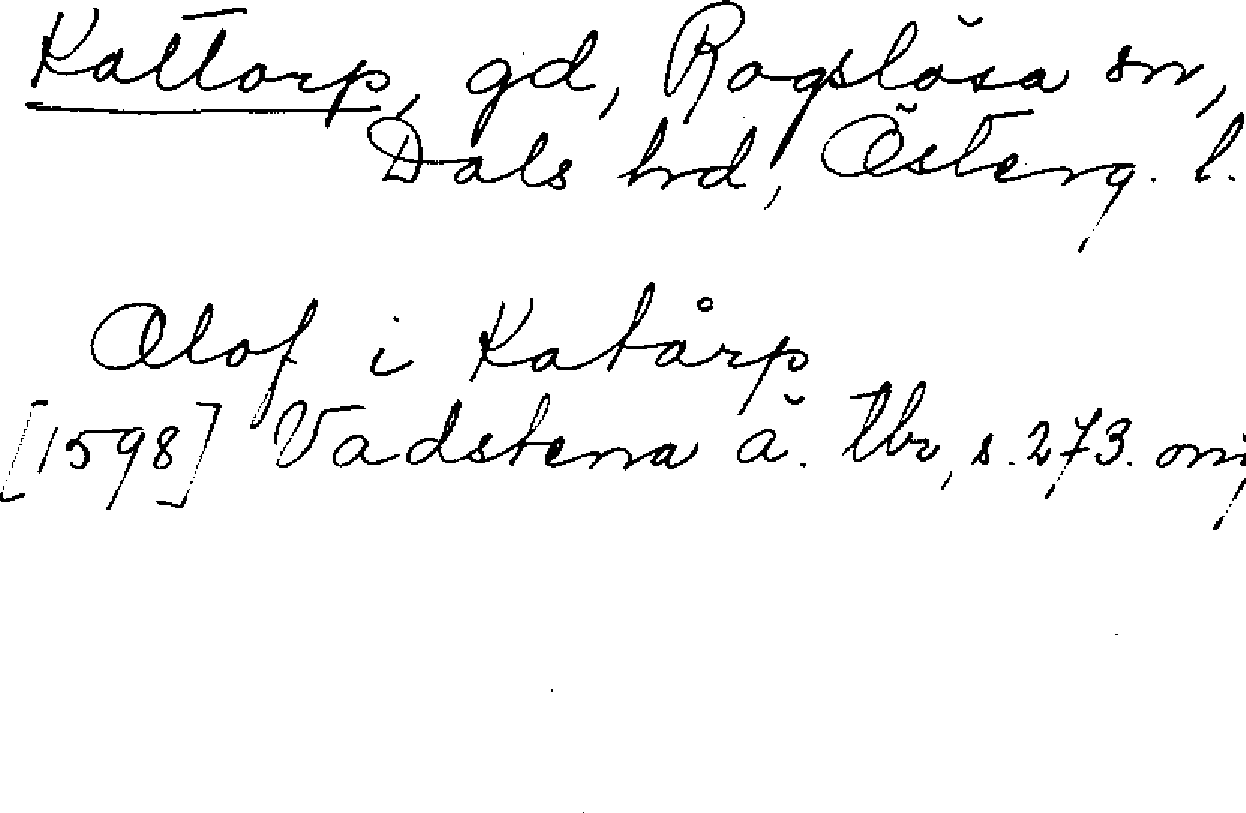 Kattorp, gd, Rogslösa sn,
Dals hrd, Österg. l.
Olof i Katårp
[1598] Vadstena ä. tbr, s. 273. om